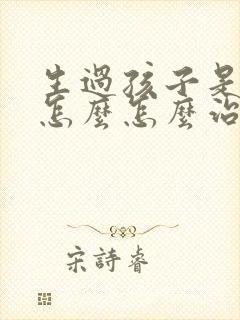 生過孩子是
怎麼怎麼治
宋詩睿